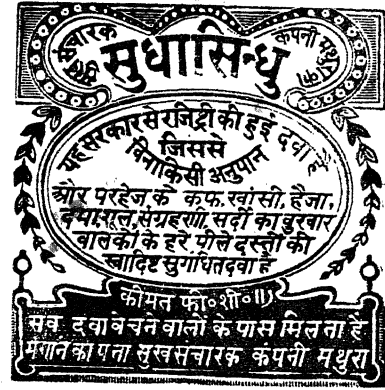 सुख संचारक कंपनी मथुरा का
सुधासिन्धु
यह सरकार से रजिट्री की हुई दवा है
जिससे
बिना किसी अनुपान
और परहेज के कफ, खांसी, हैजा,
शूल, संग्रहणी, सर्दी का बुखार
बालकों के हरे, पीले दस्तों की
स्वादिष्ट सुगंधित दवा है
कीमत फी॰शी॰॥)
सब दवा बेचने वालों के पास मिलता है
मंगाने का पता सुखसंचारक कंपनी मथुरा